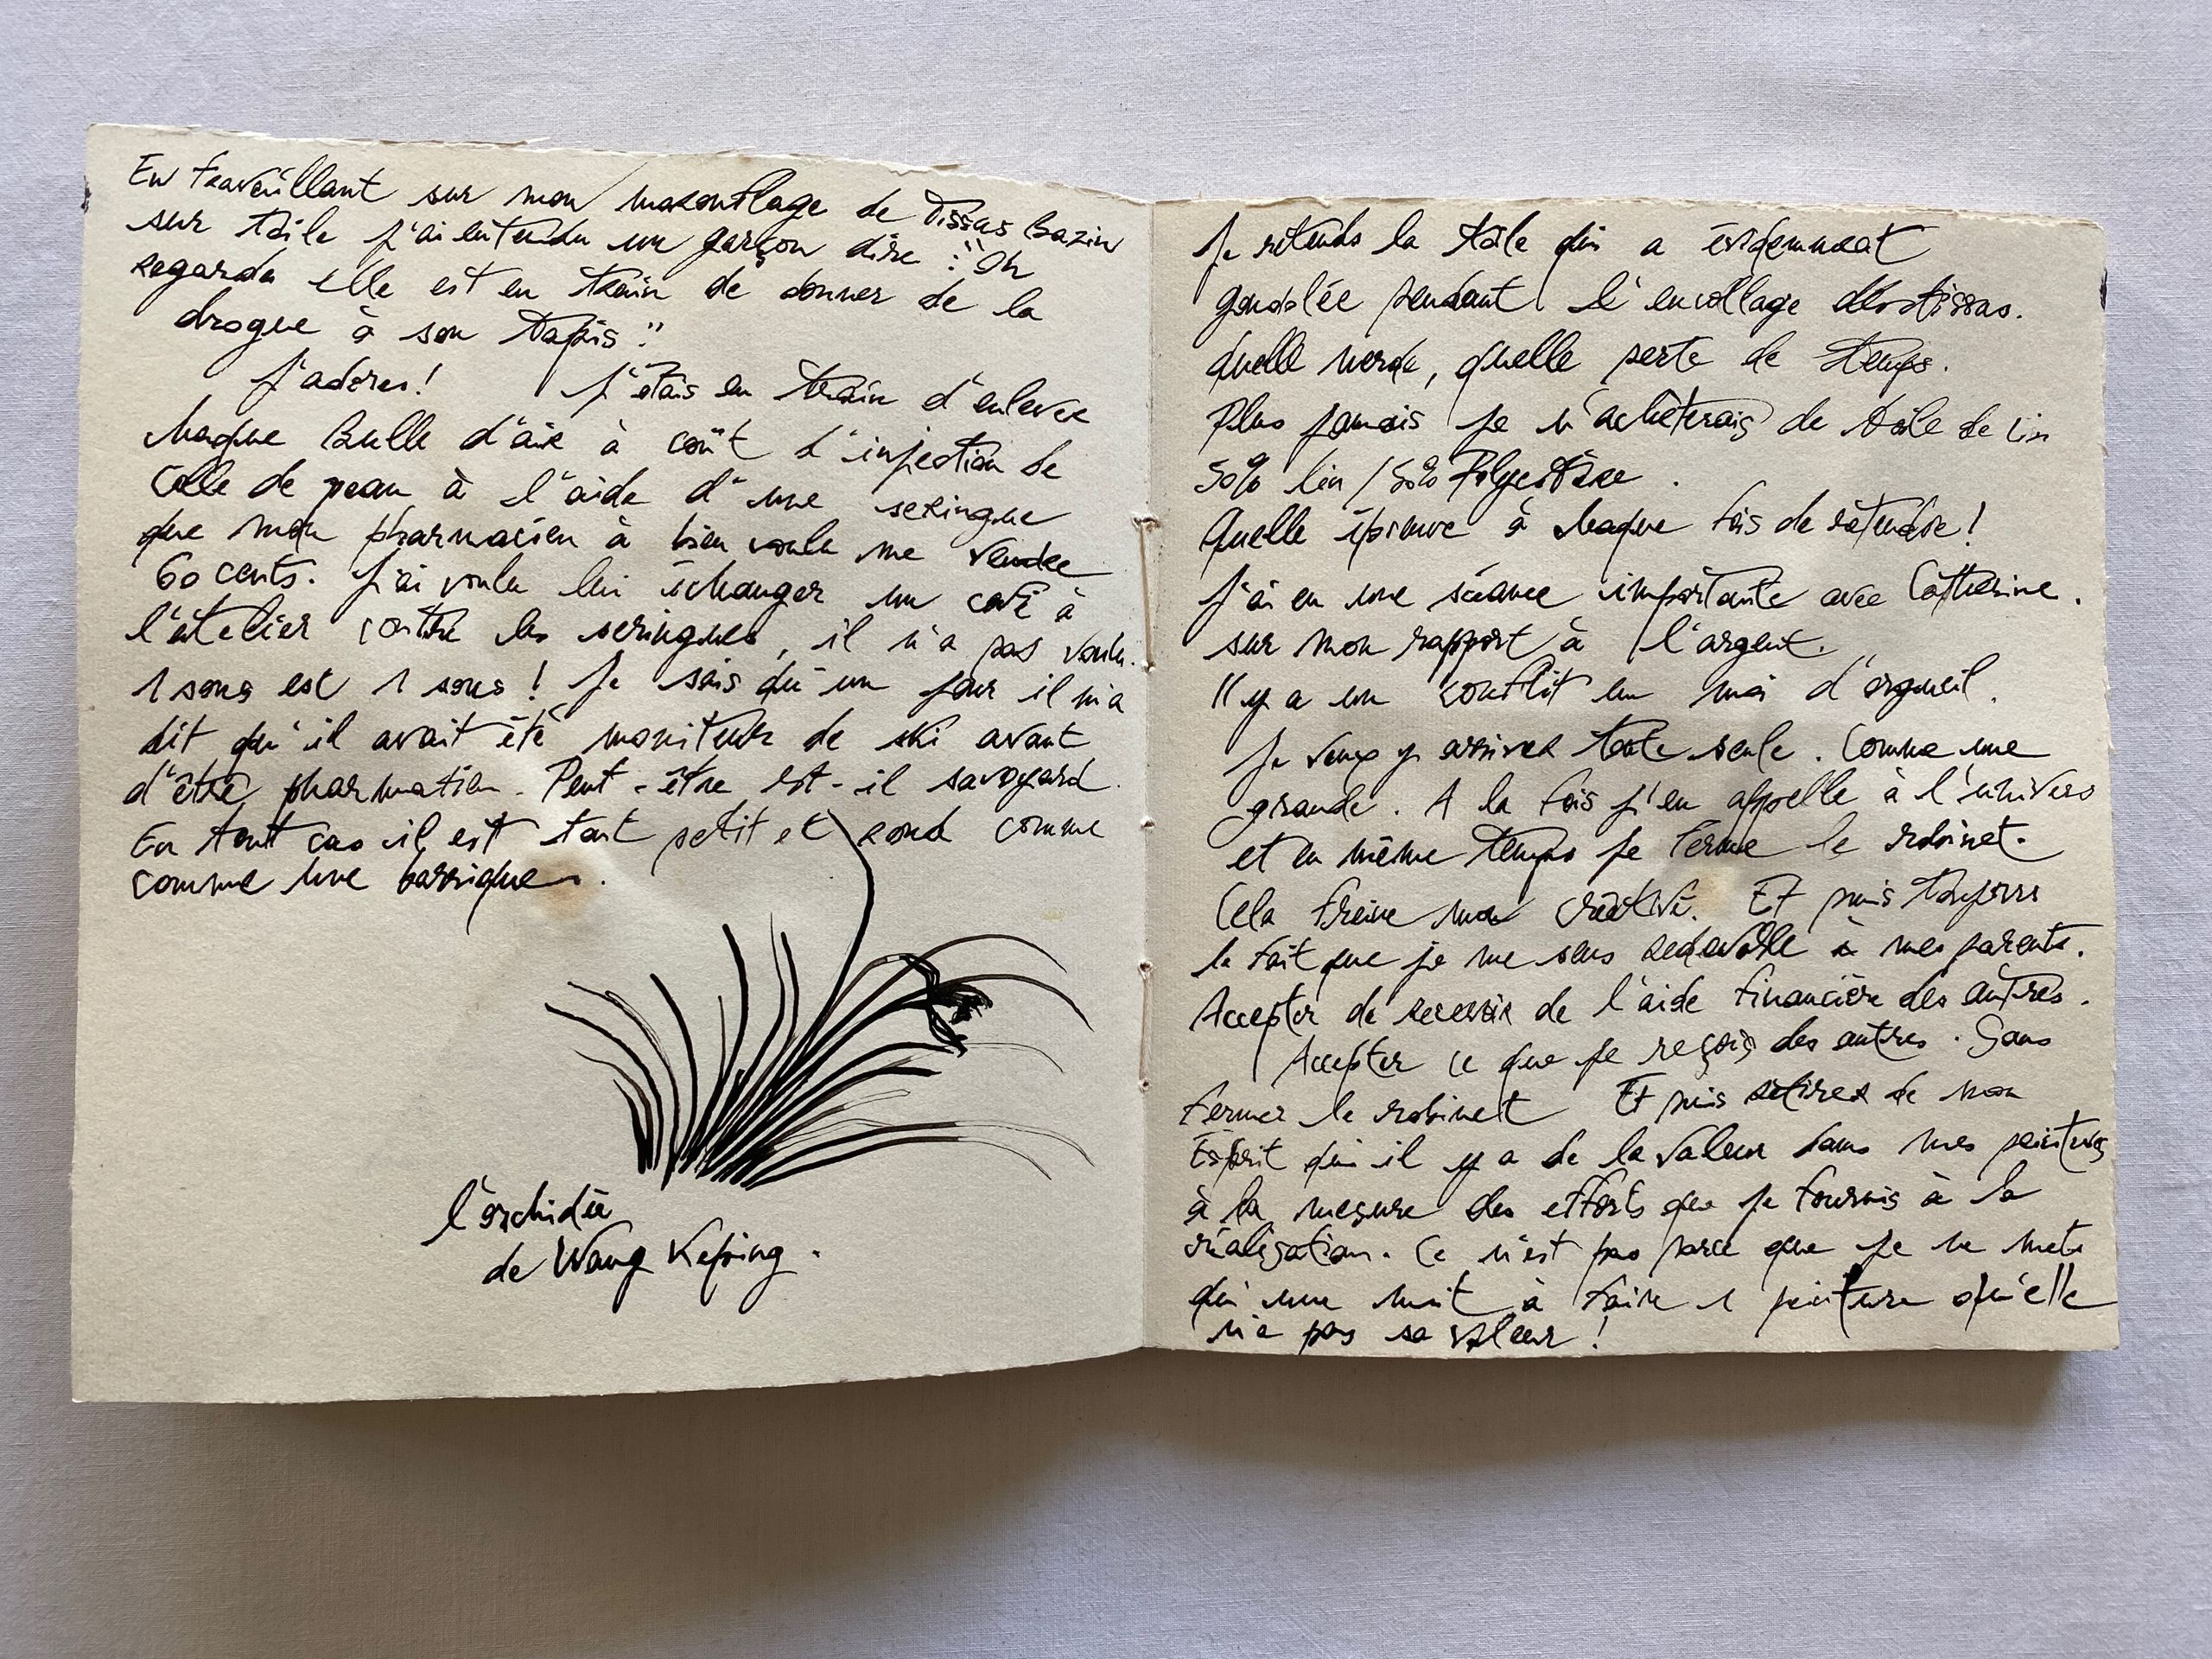 En travaillant sur mon marouflage de Tissus bazin
sur toile j'ai entendu un garçon dire : "Oh
regarde elle est en train de donner de la
drogue à son tapis"
J'adores! J'étais en train d'enlever
chaque bulle d'air à coût d'injection de
colle de peau à l'aide d'une seringue
que mon pharmacien à bien voulu me vendre
60 cents. J'ai voulu lui échanger un café à
l'atelier contre les seringues, il n'a pas voulu.
1 sous est 1 sous! Je sais qu'un jour il m'a
dit qu'il avait été moniteur de ski avant
d'être pharmatien. Peut-être est-il savoyard.
En tout cas il est tout petit et rond comme
comme une barrique.
l'orchidée
de Wang Keping.
Je retends la toile qui a évidemment
gondolée pendant l'encollage des tissus.
Quelle merde, quelle perte de temps.
Plus jamais je n'achèterais de toile de lin
50% lin / 50% Polyestère.
Quelle épreuve à chaque fois de retendre!
J'ai eu une séance importante avec Catherine.
sur mon rapport à l'argent.
Il y a un conflit en moi d'orgueil.
Je veux y arriver toute seule. Comme une
grande. A la fois j'en appelle à l'univers
et en même temps je ferme le robinet.
Cela freine ma créativé. Et puis toujours
le fait que je me sens redevable à mes parents.
Accepter de recevoir de l'aide financière des autres.
Accepter ce que je reçois des autres. Sans
fermer le robinet Et puis retirer de mon
Esprit qu'il y a de la valeur dans mes peintures
à la mesure des efforts que je fournis à la
réalisation. Ce n'est pas parce que je ne mets
qu'une nuit à faire 1 peinture qu'elle
n'a pas sa valeur!